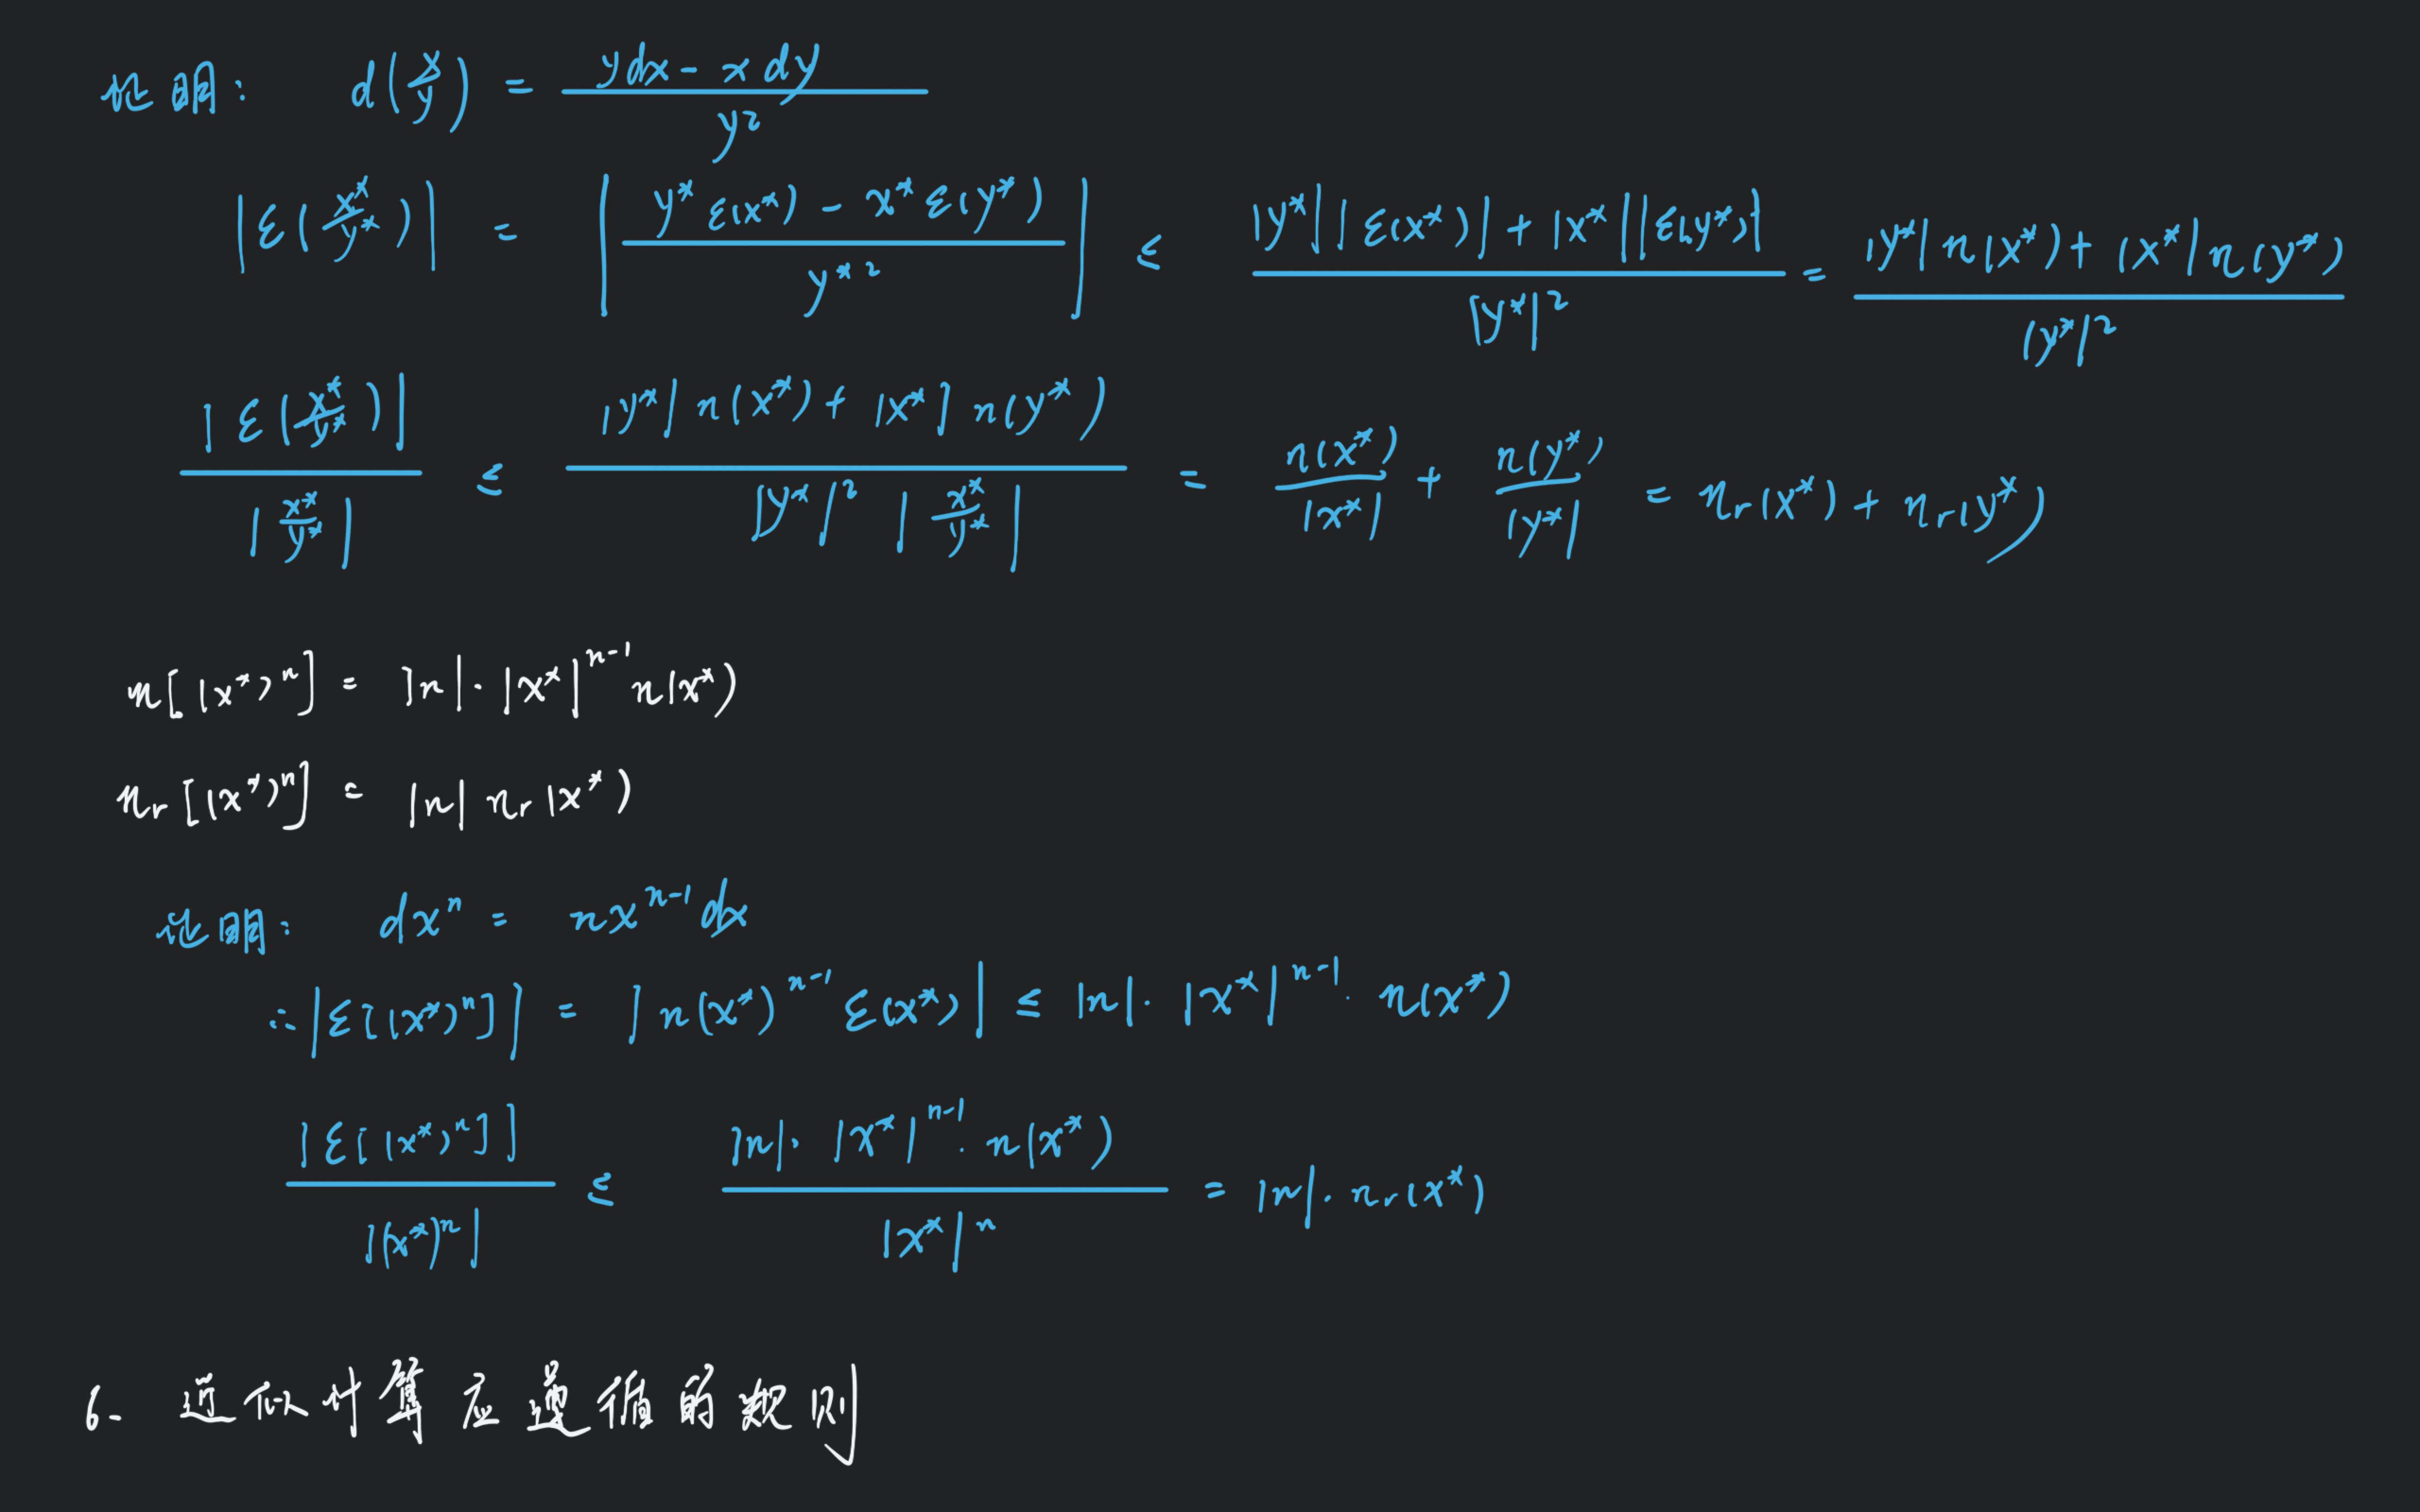 证明: d(x/y) = (ydx - x dy)/y²
|ε(x*/y*)| = |(y* ε(x*) - x* ε(y*))/y*²| ≤ (|y*||ε(x*)| + |x*||ε(y*)|)/|y*|² = (|y*| η(x*) + |x*| η(y*))/|y*|²
|ε(x*/y*)|/|x*/y*| ≤ (|y*| η(x*) + |x*| η(y*))/(|y*|² |x*/y*|) = η(x*)/|x*| + η(y*)/|y*| = ηr(x*) + ηr(y*)
η[(x*)ⁿ] = |n|·|x*|ⁿ⁻¹ η(x*)
ηr[(x*)ⁿ] = |n| ηr(x*)
证明: dxⁿ = nxⁿ⁻¹dx
∴ |ε[(x*)ⁿ]| = |n(x*)ⁿ⁻¹ ε(x*)| ≤ |n|·|x*|ⁿ⁻¹·η(x*)
|ε[(x*)ⁿ]|/|(x*)ⁿ| ≤ (|n|·|x*|ⁿ⁻¹·η(x*))/|x*|ⁿ = |n|·ηr(x*)
6. 近似计算应遵循的规则